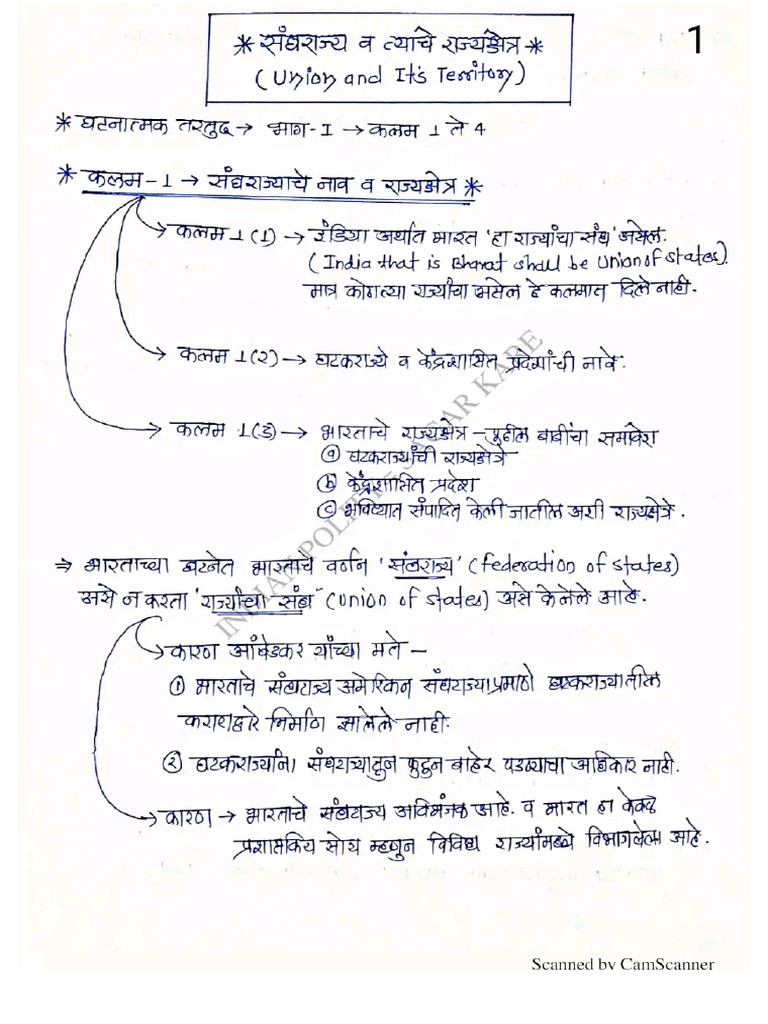 1
* संघराज्य व त्याचे राज्यक्षेत्र *
(Union and It's Territory)
* घटनात्मक तरतुद → भाग-I → कलम 1 ते 4
* कलम-1 → संघराज्याचे नाव व राज्यक्षेत्र *
कलम 1(1) → इंडिया अर्थात भारत 'हा राज्यांचा संघ' असेल.
(India that is Bharat shall be Union of States).
मात्र कोणत्या राज्यांचा असेल हे कलमात दिले नाही.
कलम 1(2) → घटकराज्ये व केंद्रशासित प्रदेशांची नावे.
कलम 1(3) → भारताचे राज्यक्षेत्र - पुढील बाबींचा समावेश
ⓐ घटकराज्यांची राज्यक्षेत्रे
ⓑ केंद्रशासित प्रदेश
ⓒ भविष्यात संपादित केली जातील अशी राज्यक्षेत्रे.
⇒ भारताच्या घटनेत भारताचे वर्णन 'संघराज्य' (federation of states)
असे न करता 'राज्यांचा संघ' (union of states) असे केलेले आहे.
कारण आंबेडकर यांच्या मते -
① भारताचे संघराज्य अमेरिकन संघराज्याप्रमाणे घटकराज्यातील
कराराद्वारे निर्माण झालेले नाही.
② घटकराज्यांना संघराज्यातून फुटून बाहेर पडण्याचा अधिकार नाही.
कारण → भारताचे संघराज्य अविभंजक आहे. व भारत हा केवळ
प्रशासकिय सोय म्हणुन विविध राज्यांमध्ये विभागलेला आहे.
INDIAN POLITY - SAGAR KARE
Scanned by CamScanner